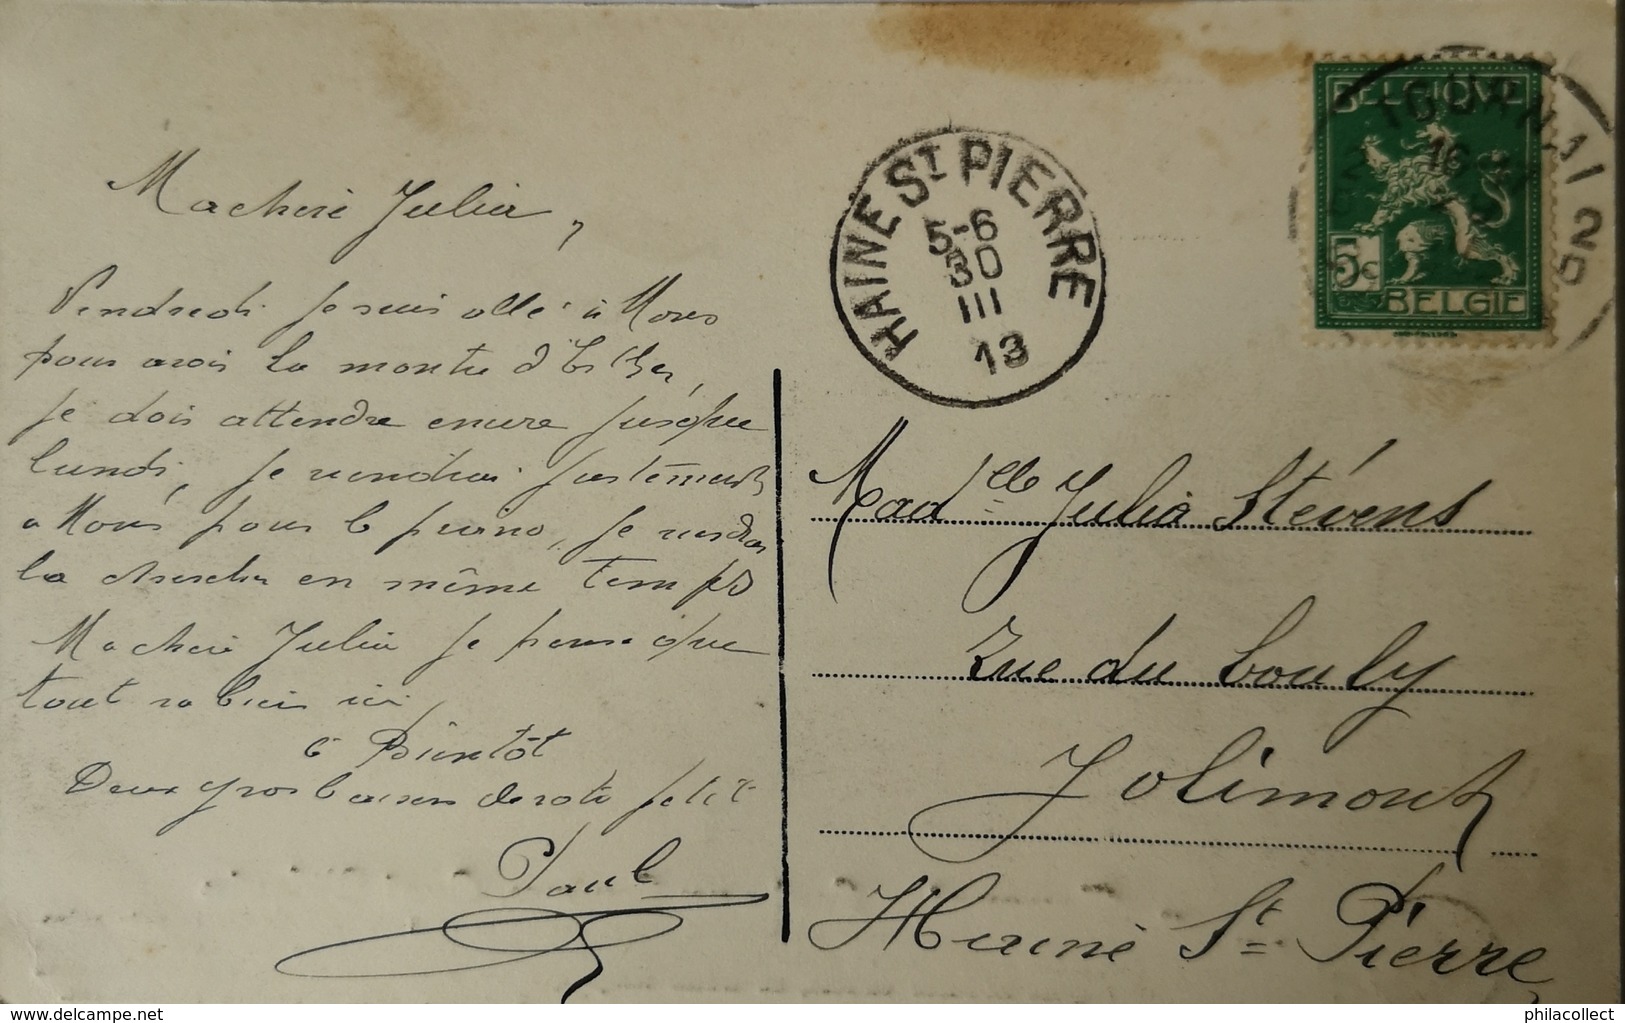 Ma cheré Julia,
Vendredi je suis allé à Mons
pour avoir la montre d'Esther,
je dois attendre encore jusque
lundi, je viendrai justement
a Mons pour le piano, je viendrai
la chercher en même temps
Ma cheré Julia je pense que
tout va bien ici
à Bientôt
Deux gros baisers de votre petit
Paul
HAINE ST PIERRE
5-6
30
III
13
BELGIQUE
5c
BELGIE
TOURNAI 2
16
Madelle Julia Stévens
Rue du bouly
Jolimont
Hainé St Pierre
philacollect